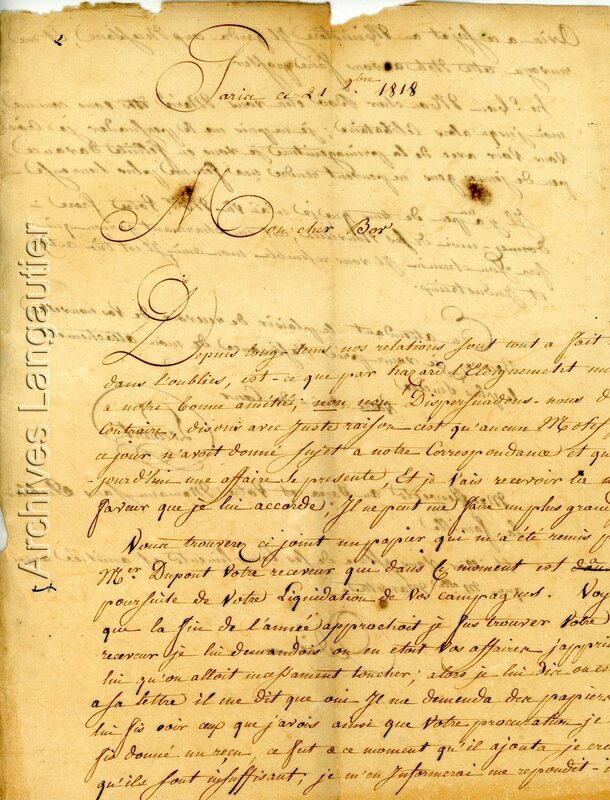 2
Paris ce 21 9bre 1818
Mon cher Bor
Depuis long-tems nos relations sont tout a fait
dans l'oublies, est-ce que par hazard l'Eloignement
a notre bonne amitiés; non non Dispersuadons-nous d
Contraire, disons avec Juste raison c'est qu'aucun Motif
ce jour n'avoit donné Sujet a notre Correspondance et qu
jourd'hui une affaire Se presente, Et je Vais recevoir la
faveur que je lui accorde; Il ne peut me faire un plus grand
Vous trouverez ci joint un papier qui m'a été remis p
Mer Dupont Votre receveur qui dans Ce moment est
poursuite de Votre Liquidation de Vos campagnes. Voy
que la fin de l'année approchoit je fus trouver Votre
receveur je lui demandois ou en etait Vos affaires j'appris
lui qu'on alloit incessament toucher; alors je lui Dis
a sa lettre il me dit que oui Il me demenda des papiers
lui fis voir ceux que j'avois ainsi que Votre procuration je
fis donné un reçu ce fut a ce moment qu'il ajouta je cro
qu'ils sont insuffisant; je m'en Informerai me repondit-
Archives Langautier